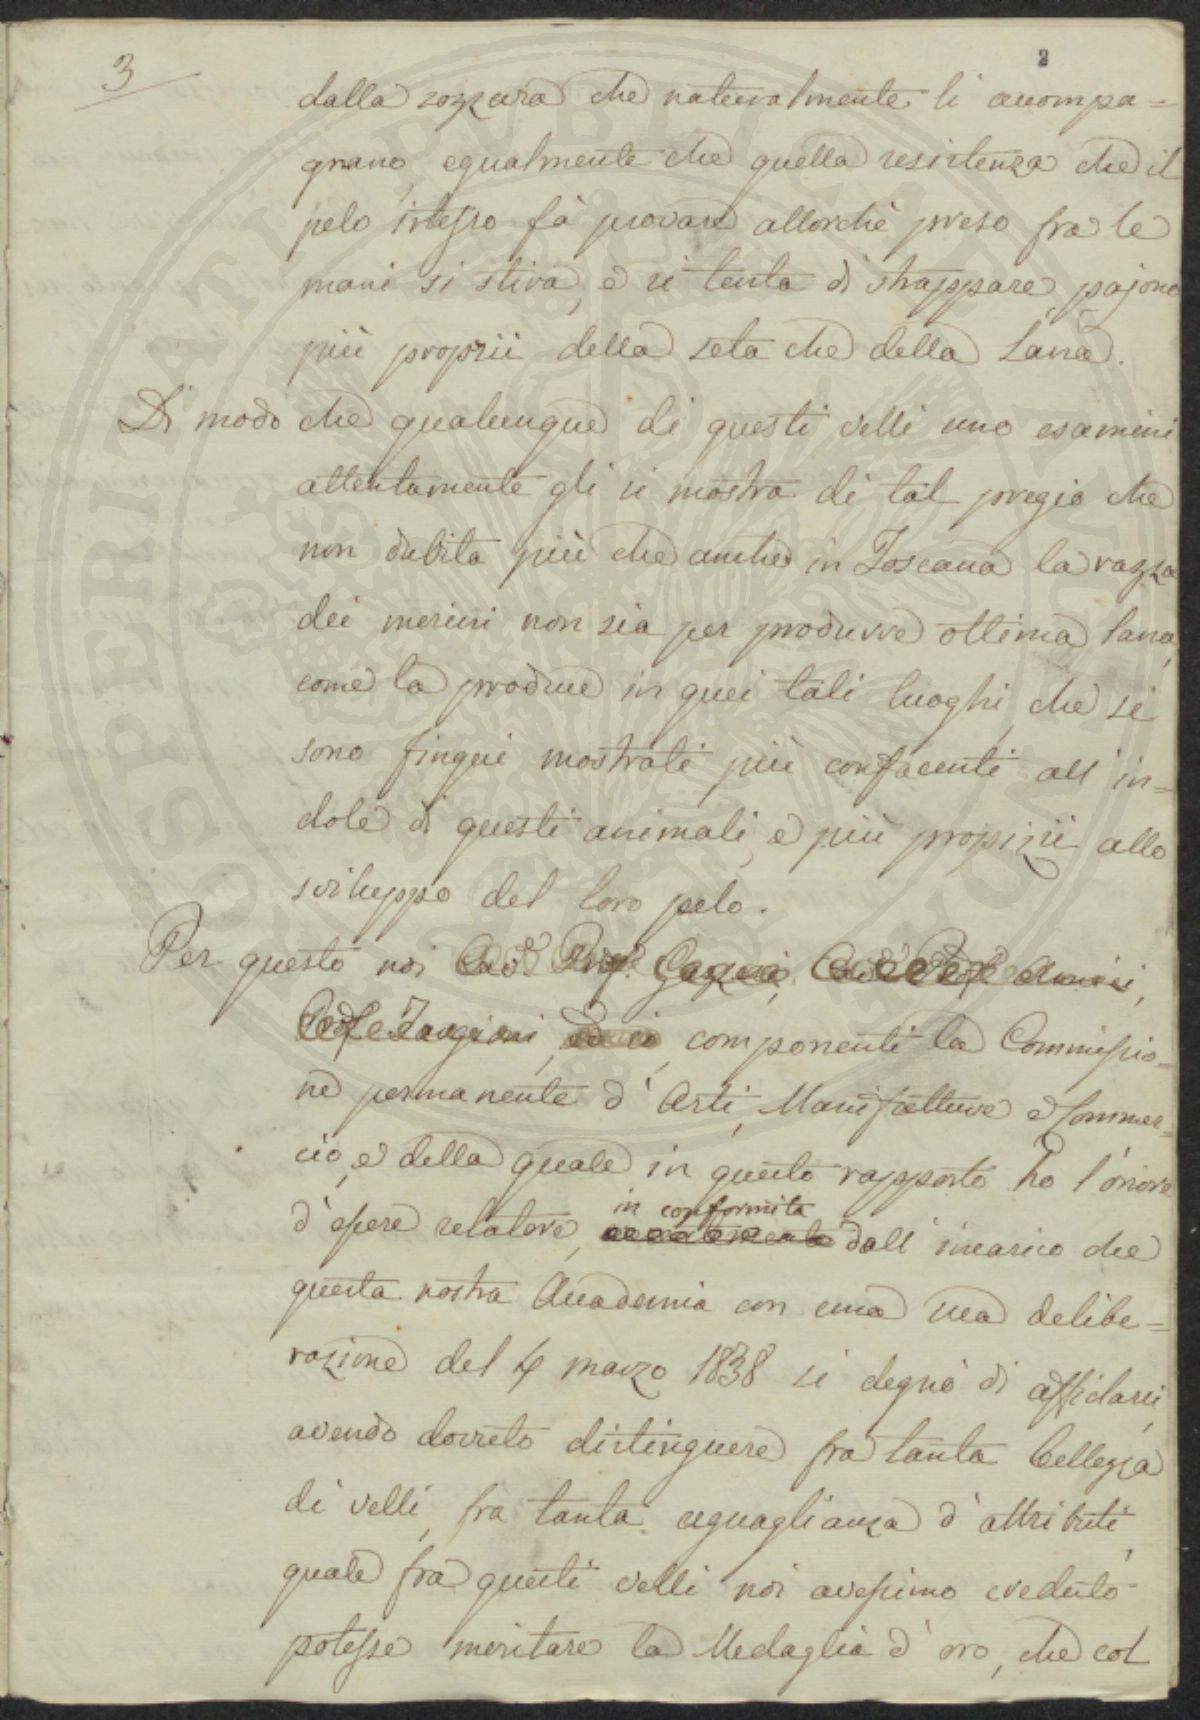 3
2
dalla sozzura che naturalmente li accompa=
gnano, egualmente che quella resistenza che il
pelo istesso fà provare allorchè preso fra le
mani si stira, e si tenta di strappare, pajono
più proprii della seta che della Lana.
Di modo che qualunque di questi velli uno esamini
attentamente gli si mostra di tal pregio che
non dubita più che anche in Toscana la razza
dei merini non sia per produrre ottima lana,
come la produce in quei tali luoghi, che si
sono finqui mostrati più confacenti all'in=
dole di questi animali, e più propizii allo
sviluppo del loro pelo.
Per questo noi Cav. Prof. Gazzeri, Cav. e Prof. Amici,
Prof. Targioni, ed io, componenti la Commissio=
ne permanente d'Arti, Manifatture e Commer=
cio, e della quale in questo rapporto ho l'onore
d'essere relatore, in conformità dall'incarico che
questa nostra Accademia con una sua delibe=
razione del 4 marzo 1838 si degnò di affidarci,
avendo dovuto distinguere fra tanta bellezza
di velli, fra tanta uguaglianza d'attributi,
quale fra questi velli noi avessimo creduto
potesse meritare la Medaglia d'oro, che col
SPERITATI PUBLICAE